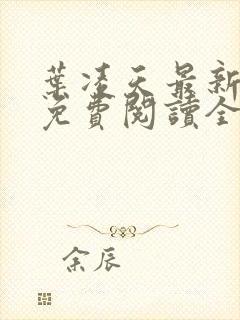 葉凌天最新
免費閱讀全
余辰